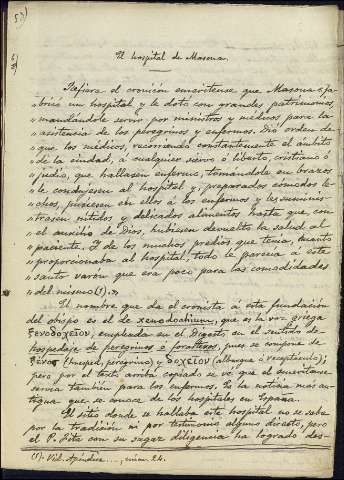 53)
El hospital de Masona.
Refiere el cronicón emeritense que Masona «fa-
»bricó un hospital y le dotó con grandes patrimonios,
»mandándole servir por ministros y médicos para la
»asistencia de los peregrinos y enfermos. Dió orden de
»que los médicos, recorriendo constantemente el ámbito
»de la ciudad, á cualquier siervo ó liberto, cristiano ó
»judio, que hallasen enfermo, tomándole en brazos
»le condujesen al hospital y, preparados cómodos le-
»chos, pusiesen en ellos á los enfermos y les suminis-
»trasen nítidos y delicados alimentos hasta que, con
»el auxilio de Dios, hubiesen devuelto la salud al
»paciente. Y de los muchos predios que tenía, cuanto
»proporcionaba al hospital, todo le parecía á este
»santo varón que era poco para las comodidades
»del mismo (1).»
El nombre que da el cronista á esta fundación
del obispo es el de xenodochium, que es la voz griega
ξενοδοχεῖον, empleada en el Digesto, en el sentido de
hospedaje de peregrinos ó forasteros, pues se compone de
ξένος (huesped, peregrino) y δοχεῖον (albergue ó receptáculo);
pero por el texto arriba copiado se vé que el emeritense
servía también para los enfermos. Es la noticia más an-
tigua que se conoce de los hospitales en España.
El sitio donde se hallaba este hospital no se sabe
por la tradición ni por testimonio alguno directo, pero
el P. Fita con su sagaz diligencia ha logrado des-
(1). Vid. Apéndice ..., núm. 24.